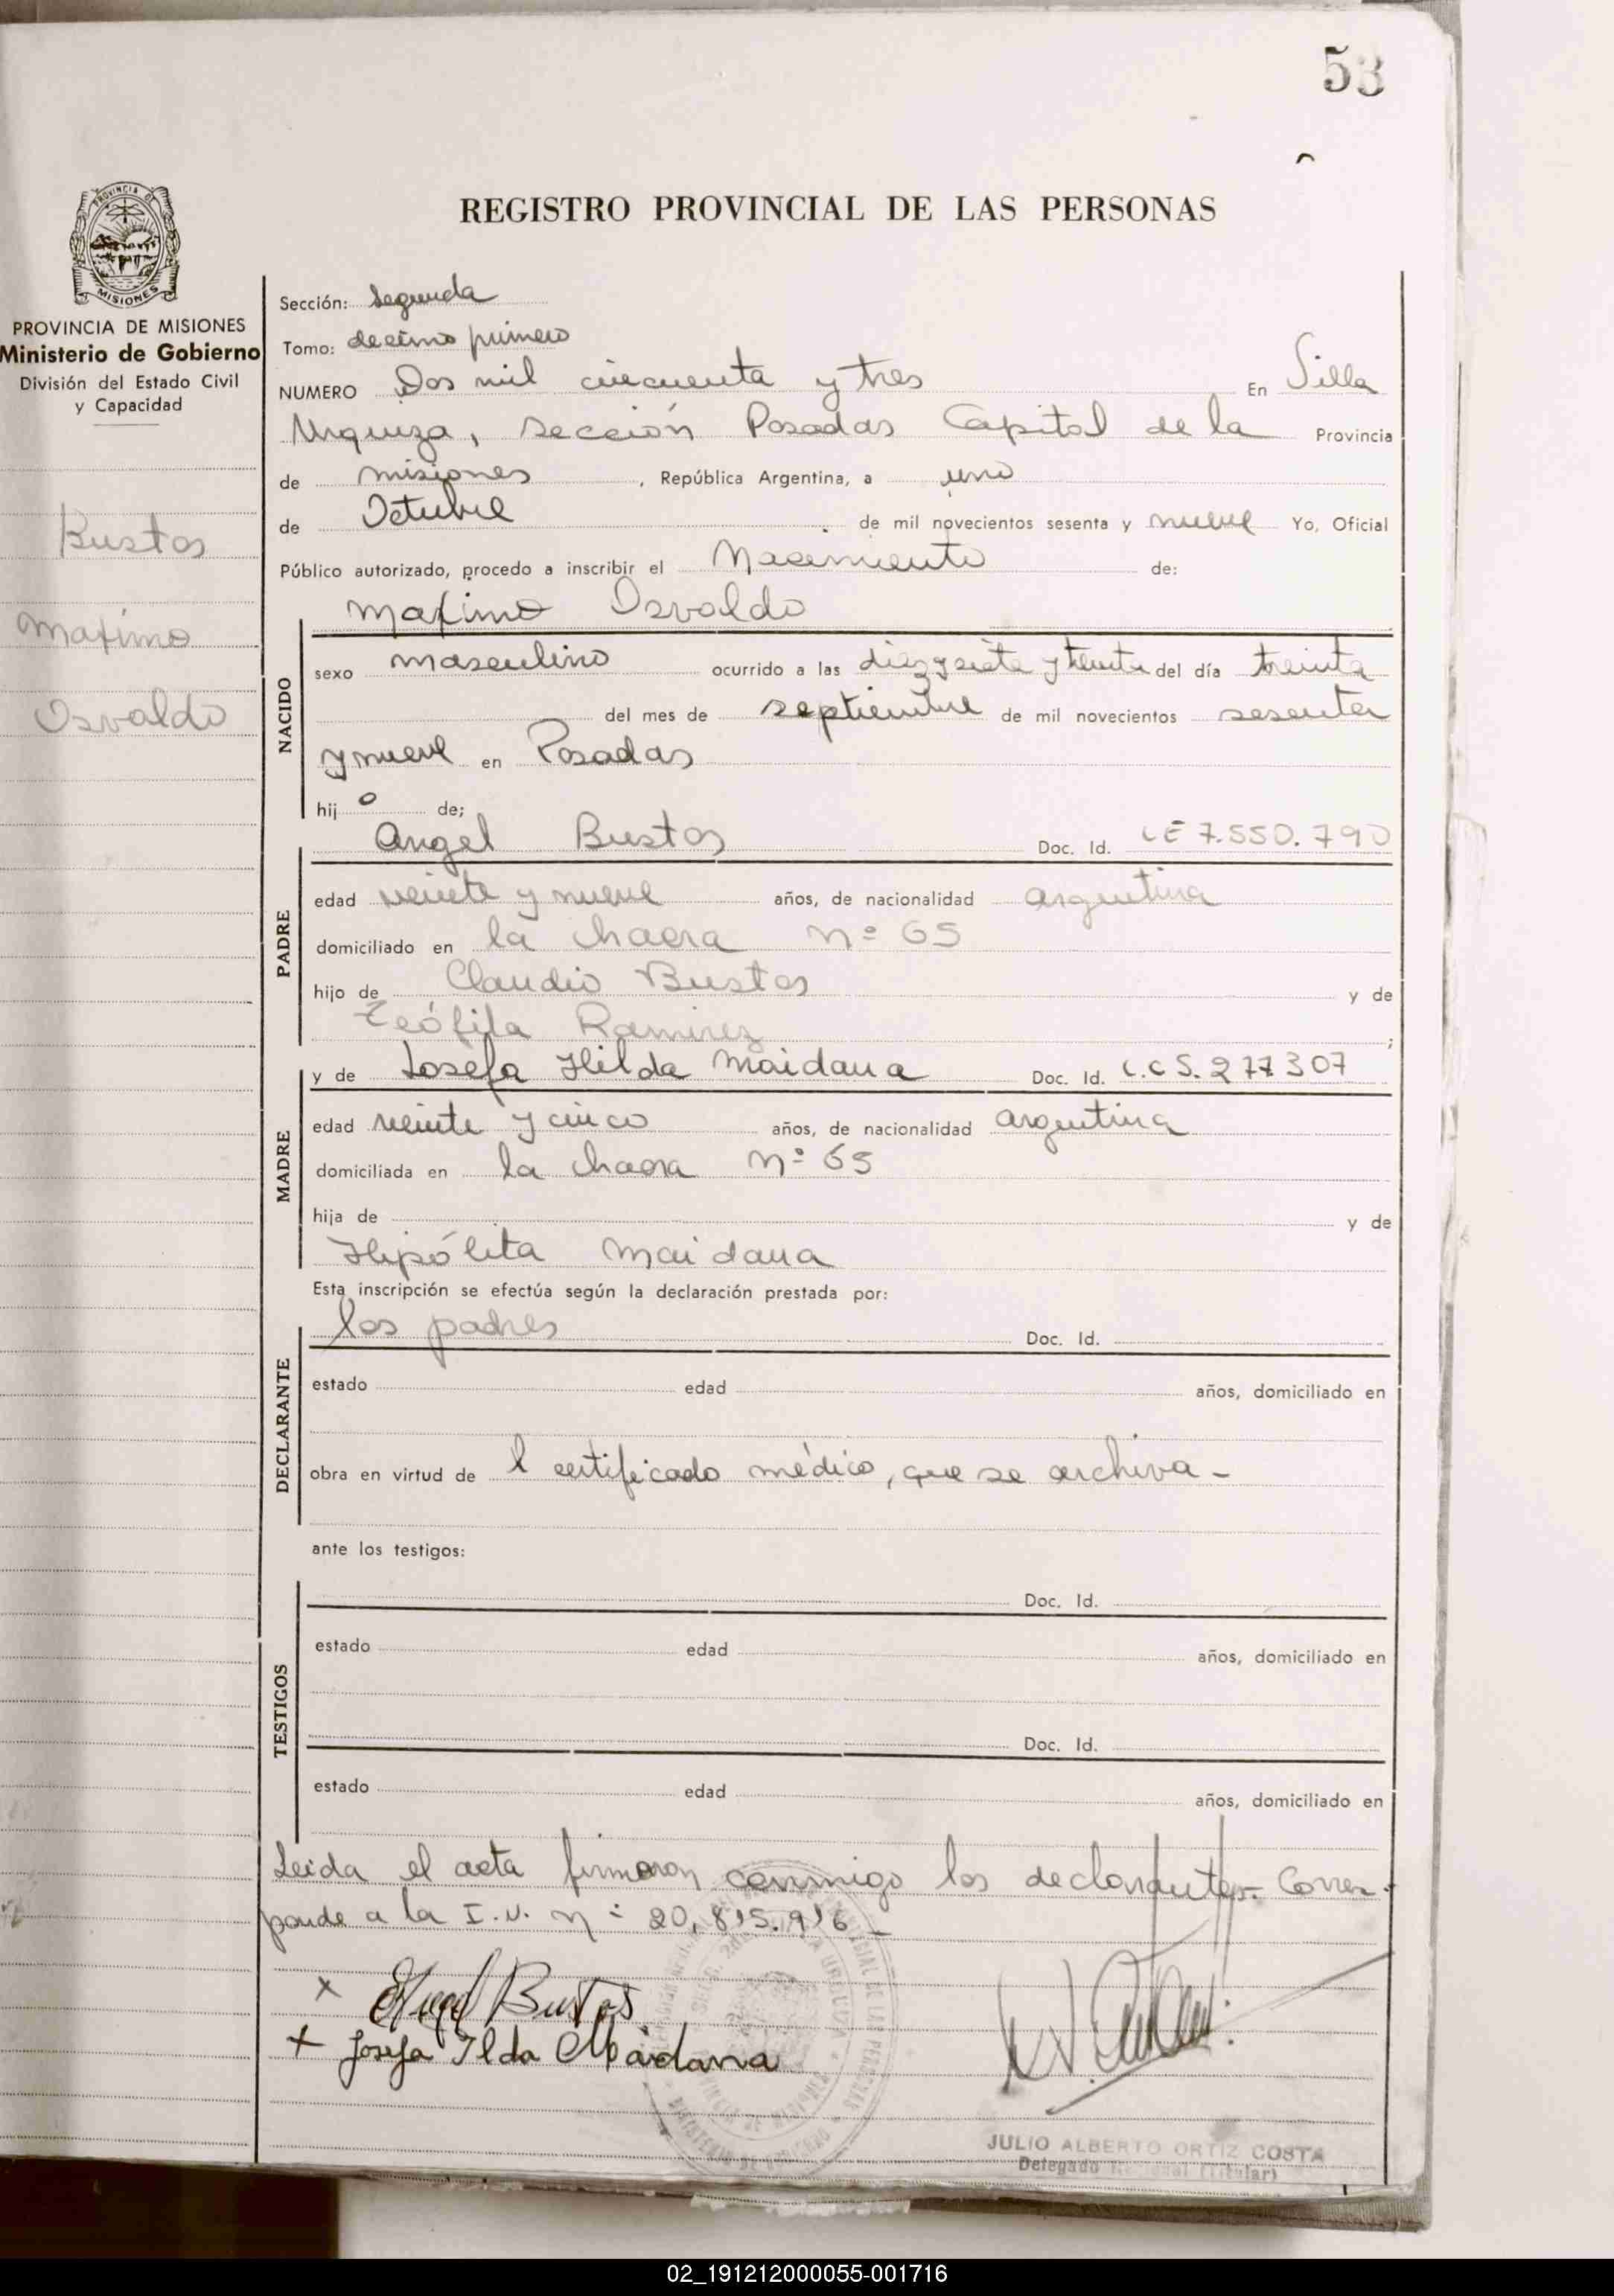 53
REGISTRO PROVINCIAL DE LAS PERSONAS
PROVINCIA DE MISIONES
Ministerio de Gobierno
División del Estado Civil
y Capacidad
Bustos
Maximo
Osvaldo
Sección: Segunda
Tomo: decimo primero
NUMERO Dos mil cincuenta y tres En Villa
Urquiza, Sección Posadas Capital de la Provincia
de misiones, República Argentina, a uno
de Octubre de mil novecientos sesenta y nueve Yo, Oficial
Público autorizado, procedo a inscribir el Nacimiento de:
Maximo Osvaldo
NACIDO
sexo masculino ocurrido a las diez y siete y treinta del día treinta
del mes de septiembre de mil novecientos sesenta
y nueve en Posadas
hijo de;
Angel Bustos Doc. Id. LE 7.550.790
PADRE
edad veinte y nueve años, de nacionalidad argentina
domiciliado en la chacra Nº 65
hijo de Claudio Bustos y de
Teófila Ramirez;
y de Josefa Hilda Maidana Doc. Id. L.C 5.277307
MADRE
edad veinte y cinco años, de nacionalidad argentina
domiciliada en la chacra Nº 65
hija de y de
Hipólita Maidana
Esta inscripción se efectúa según la declaración prestada por:
los padres Doc. Id.
DECLARANTE
estado edad años, domiciliado en
obra en virtud de l certificado médico, que se archiva -
ante los testigos:
Doc. Id.
TESTIGOS
estado edad años, domiciliado en
Doc. Id.
estado edad años, domiciliado en
Leida el acta firmaron conmigo los declarantes.- Corres-
ponde a la I.N. Nº 20,815.916 -
x Angel Bustos
x Josefa Ilda Maidana
JULIO ALBERTO ORTIZ COSTA
Delegado (Titular)
02_191212000055-001716